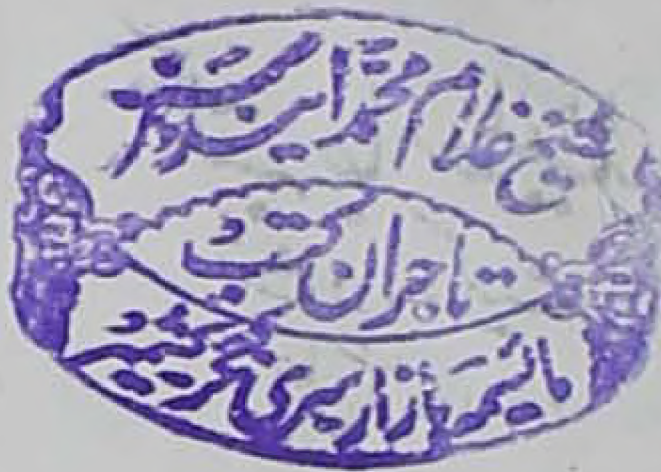 شیخ غلام محمد اینڈ سنز
تاجران کتب
مائسمہ بازار سری نگر کشمیر